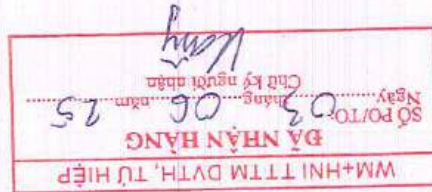 WM+HNI TTTM DVTH, TỨ HIỆP
ĐÃ NHẬN HÀNG
SỐ PO/TO:
Ngày 03 tháng 06 năm 25
Chữ ký người nhận